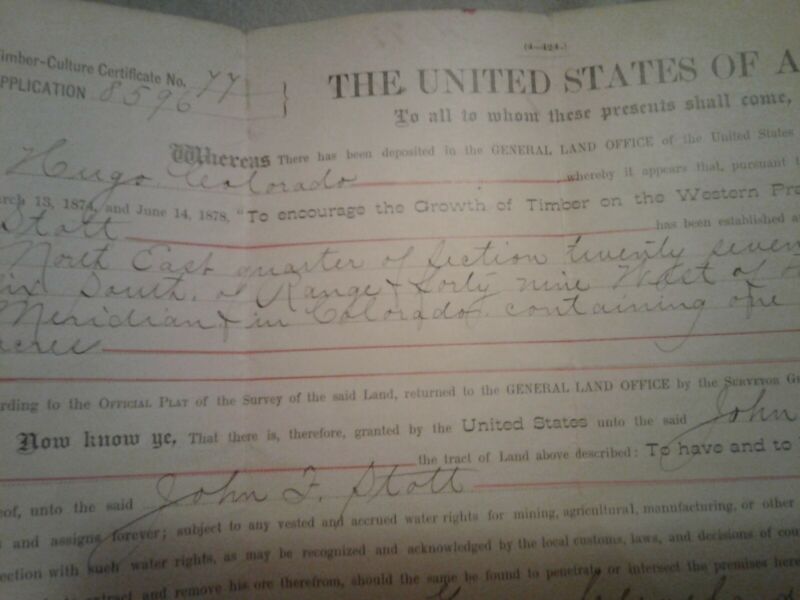 (4—424.)
Timber-Culture Certificate No. 77
APPLICATION 8596
THE UNITED STATES OF A
To all to whom these presents shall come,
Whereas There has been deposited in the GENERAL LAND OFFICE of the United States
Hugo, Colorado whereby it appears that, pursuant t
arch 13, 1874, and June 14, 1878, "To encourage the Growth of Timber on the Western Pra
Stott has been established a
North East quarter of Section twenty seven
South, of Range forty nine West of
Meridian in Colorado containing one
acres
rding to the OFFICIAL PLAT of the Survey of the said Land, returned to the GENERAL LAND OFFICE by the SURVEYOR G
Now know ye, That there is, therefore, granted by the United States unto the said John
the tract of Land above described: To have and to
eof, unto the said John F. Stott
and assigns forever; subject to any vested and accrued water rights for mining, agricultural, manufacturing, or other
ection with such water rights, as may be recognized and acknowledged by the local customs, laws, and decisions of cou
extract and remove his ore therefrom, should the same be found to penetrate or intersect the premises here